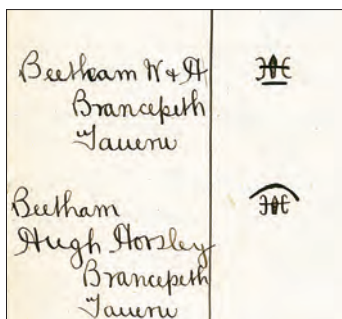 Beetham W & H
Brancepeth
Taueru
Beetham
Hugh Horsley
Brancepeth
Taueru